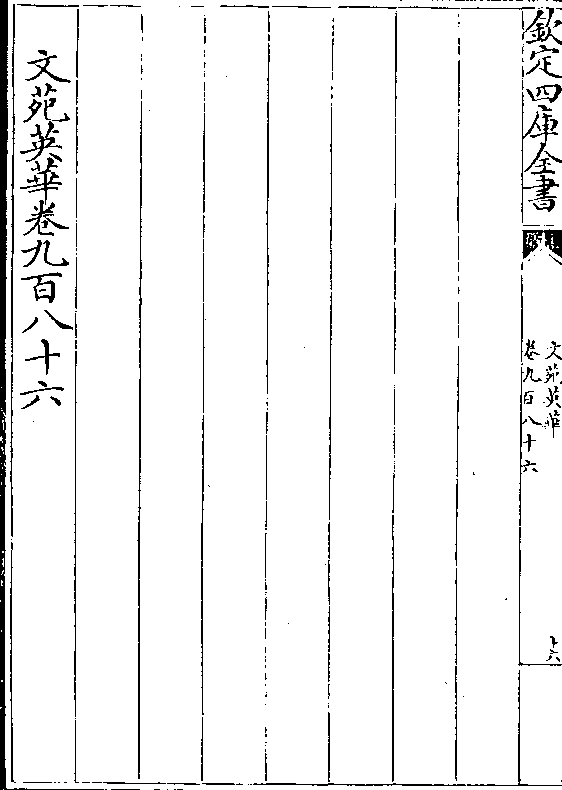 欽定四庫全書
文苑英華
卷九百八十六
十六
文苑英華卷九百八十六